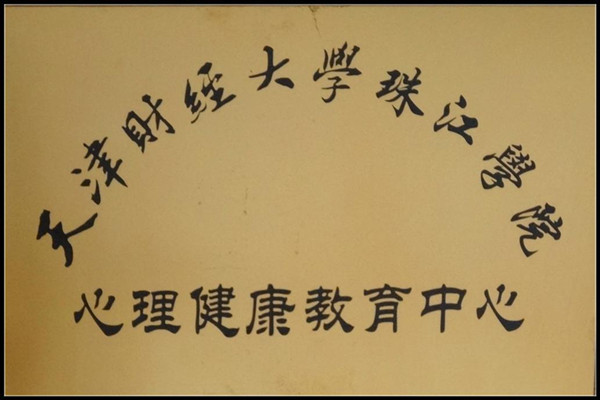 天津財經大學珠江學院
心理健康教育中心